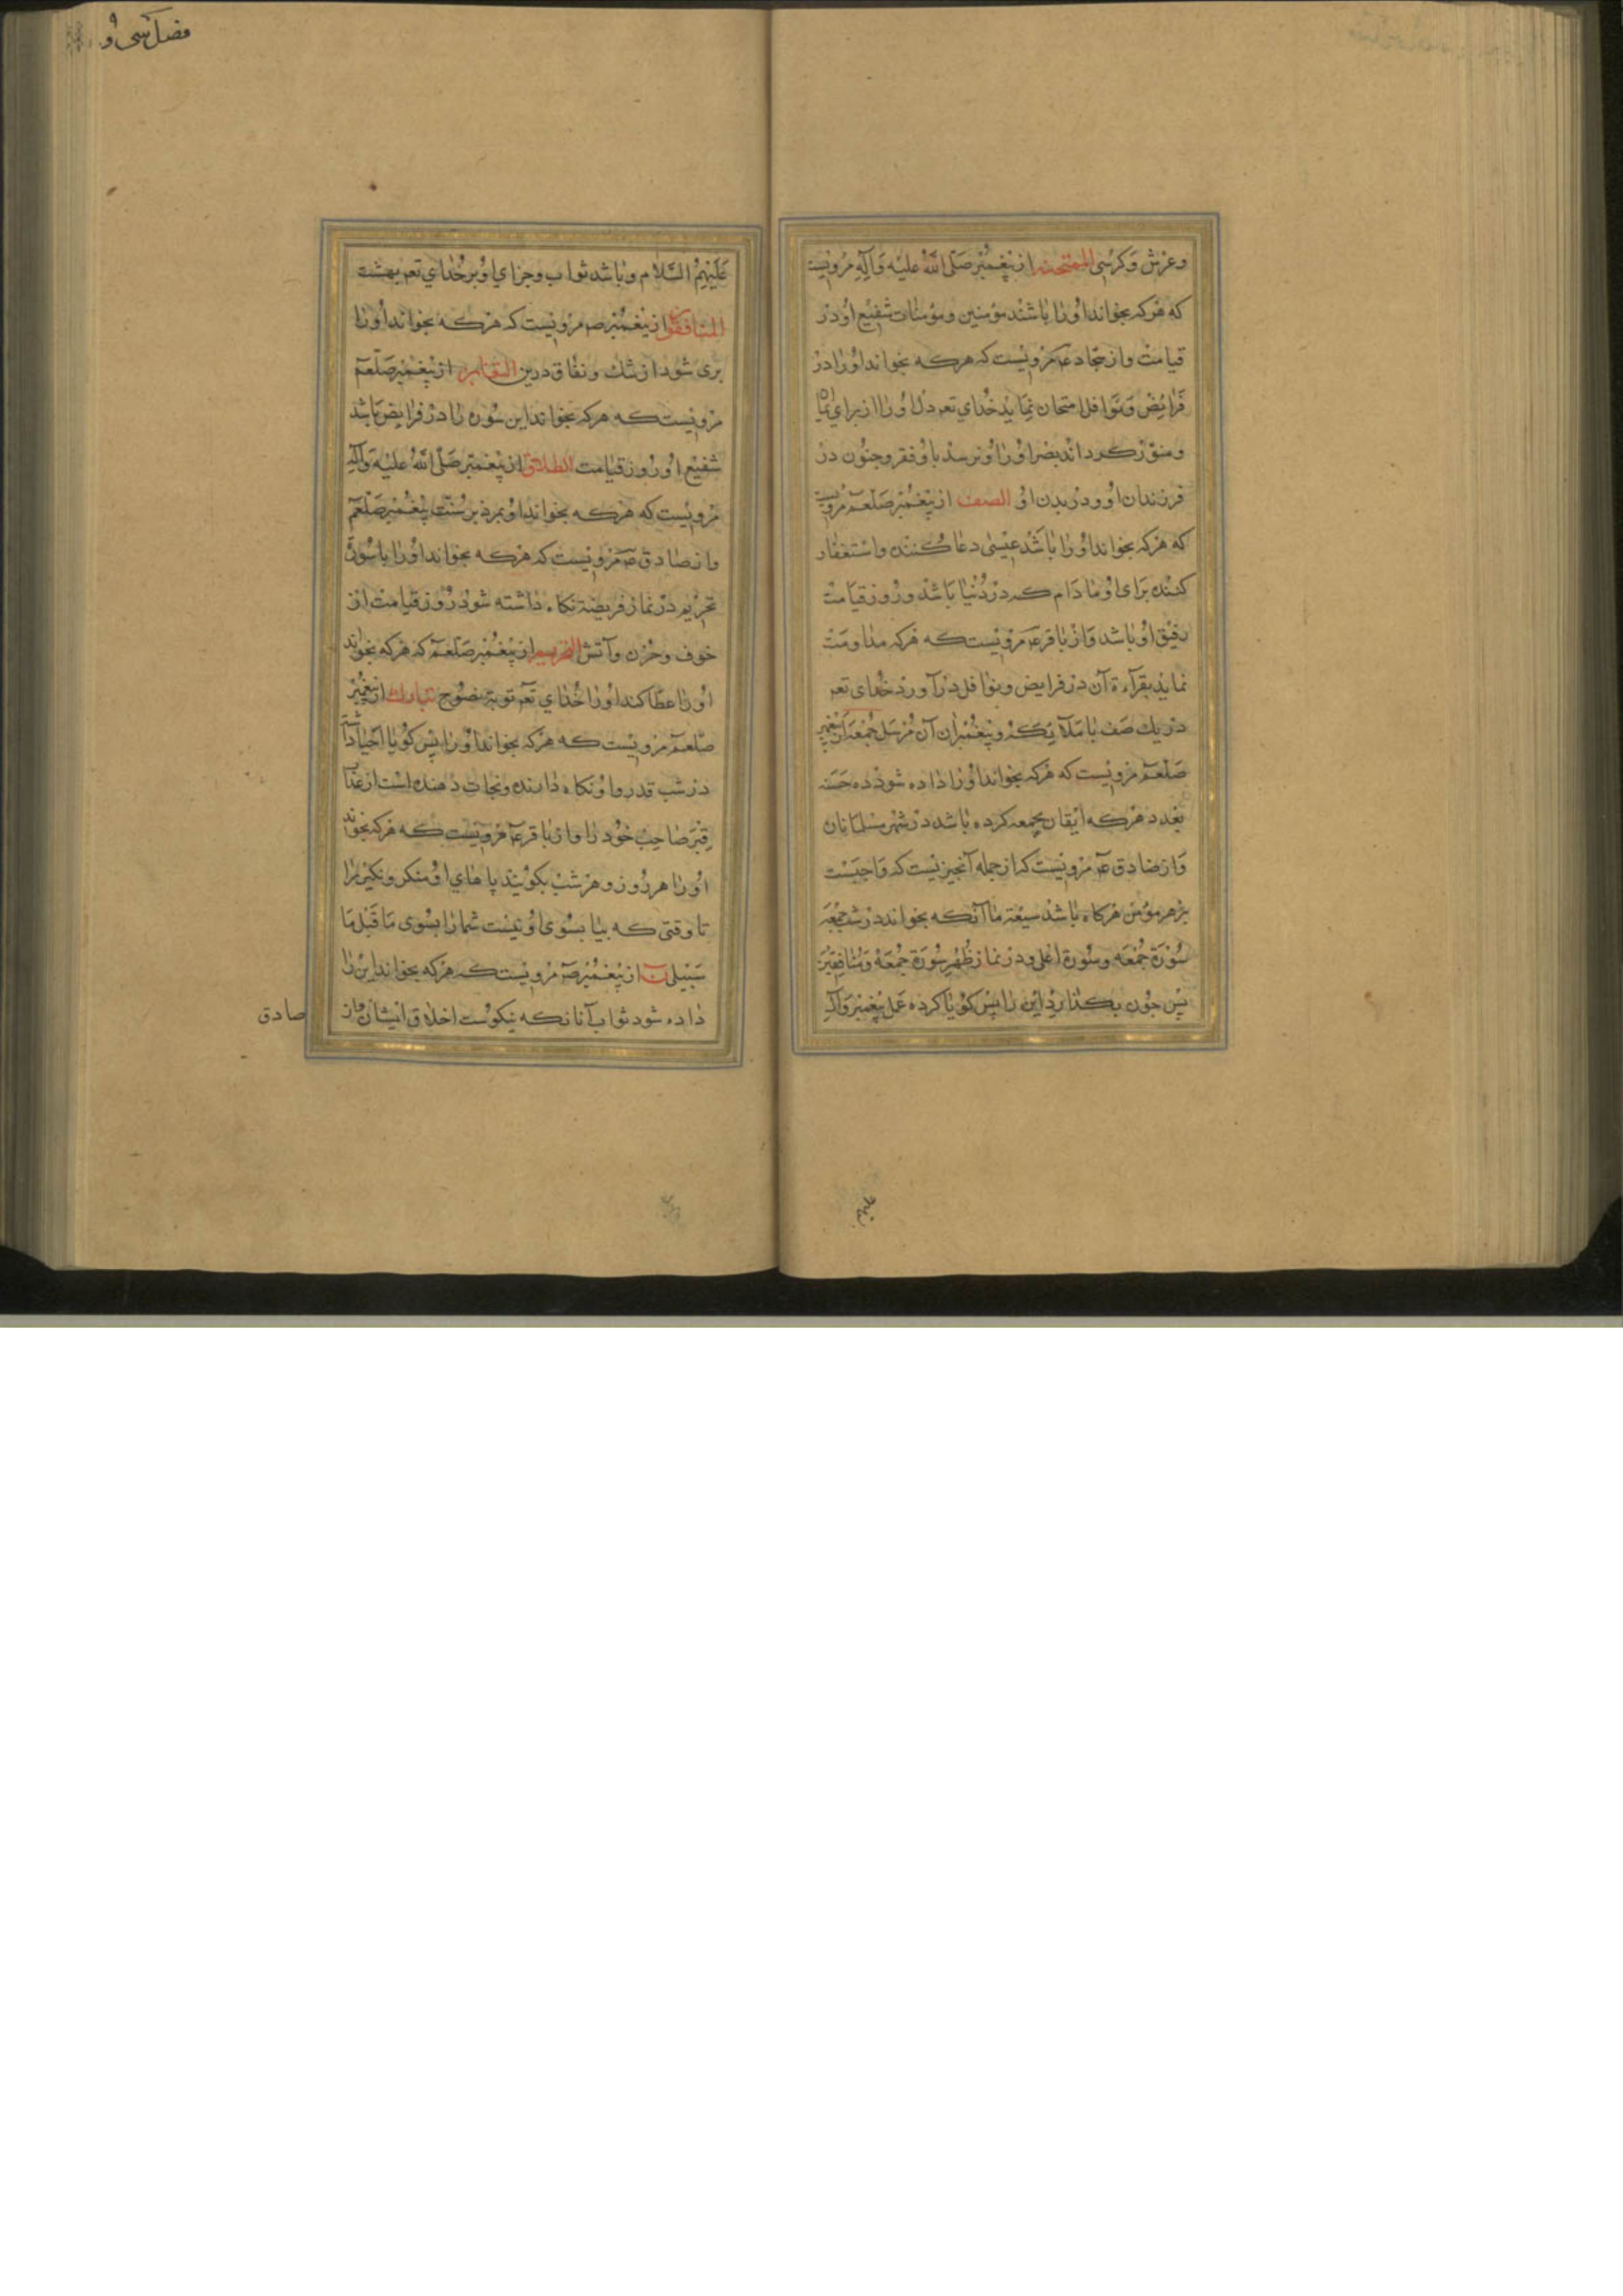 وعرش وکرسی الممتحنه از پیغمبر صلی الله علیه وآله مرویست
که هرکه بخواند اورا باشند مؤمنین ومؤمنات شفیع او در
قیامت واز سجاد عه مرویست که هرکه بخواند اورا در
فرایض ونوافل امتحان نماید خدای تعه دل اورا از برای
ومنور کرداند بصر اورا ونرسد باو فقر وجنون در
فرزندان او ودر بدن او الصف از پیغمبر صلعم مرویست
که هرکه بخواند اورا باشد عیسی دعا کننده واستغفار
کننده برای او مادام که در دنیا باشد وروز قیامت
رفیق او باشد واز باقر عه مرویست که هرکه مداومت
نماید بقرآءة آن در فرایض ونوافل درآورد خدای تعه
در یك صف با ملآئکه وپیغمبران آن مرسل جمعه از پیغمبر
صلعم مرویست که هرکه بخواند اورا داده شود ده حسنه
بعدد هرکه ایقان بجمعه کرده باشد در شهر مسلمانان
واز صادق عه مرویست که از جمله آنجیزیست که واجبست
بر هر مؤمن هرکاه باشد شیعۀ ما آنکه بخواند در شب جمعه
سورة جمعه وسورة اعلی ودر نماز ظهر سورة جمعة ومنافقین
پس جون بکذارد این را پس کویا کرده عمل پیغمبر وآله
علیهم
فضل سی و
علیهم السلام وباشد ثواب وجزای او بر خدای تعه بهشت
المنافقون از پیغمبر صه مرویست که هرکه بخواند اورا
بری شود از شك ونفاق در دین التغابن از پیغمبر صلعم
مرویست که هرکه بخواند این سوره را در فرایض باشد
شفیع او روز قیامت الطلاق از پیغمبر صلی الله علیه وآله
مرویست که هرکه بخواند او بمرد بر سنت پیغمبر صلعم
واز صادق عه مرویست که هرکه بخواند اورا با سورة
تحریم در نماز فریضة نکاه داشته شود روز قیامت از
خوف وحزن وآتش التحریم از پیغمبر صلعم که هرکه بخواند
اورا عطا کند اورا خدای تعه توبۀ نصوح تبارك از پیغمبر
صلعم مرویست که هرکه بخواند اورا پس کویا احیا داشته
در شب قدر واو نکاه دارنده ونجات دهنده است از عذاب
قبر صاحب خود را واز باقر عه مرویست که هرکه بخواند
اورا هر روز وهر شب بکویند پاهای او منکر ونکیر را
تا وقتی که بیا بسوی او نیست شمارا بسوی ما قبل ما
سبیلی ن از پیغمبر صه مرویست که هرکه بخواند این را
داده شود ثواب آنانکه نیکوست اخلاق ایشان واز
صادق